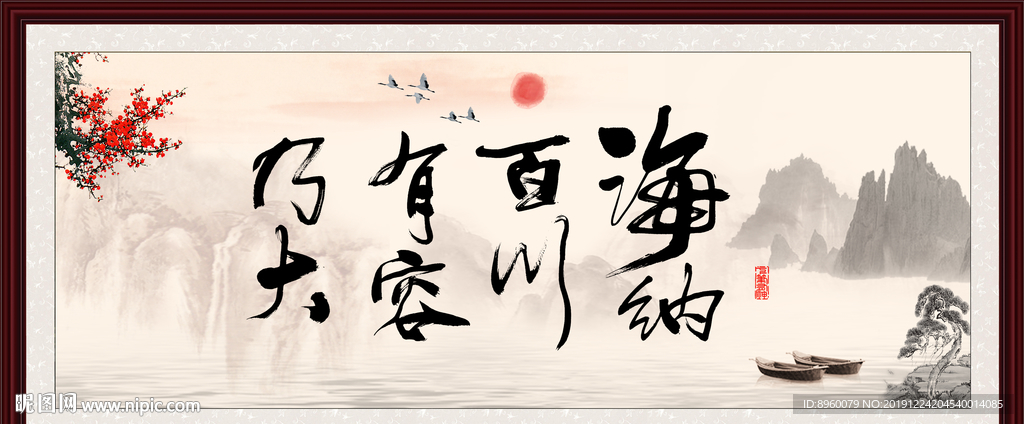 海纳
百川
有容
乃大
昵图网 www.nipic.com
ID:8960079 NO:20191224204540014085